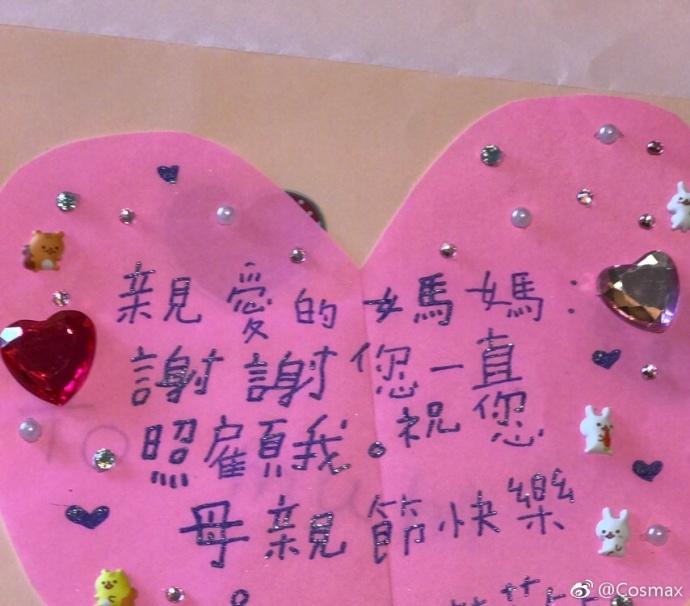 親愛的媽媽:
謝謝您一直
照顧我。祝您
母親節快樂
@Cosmax